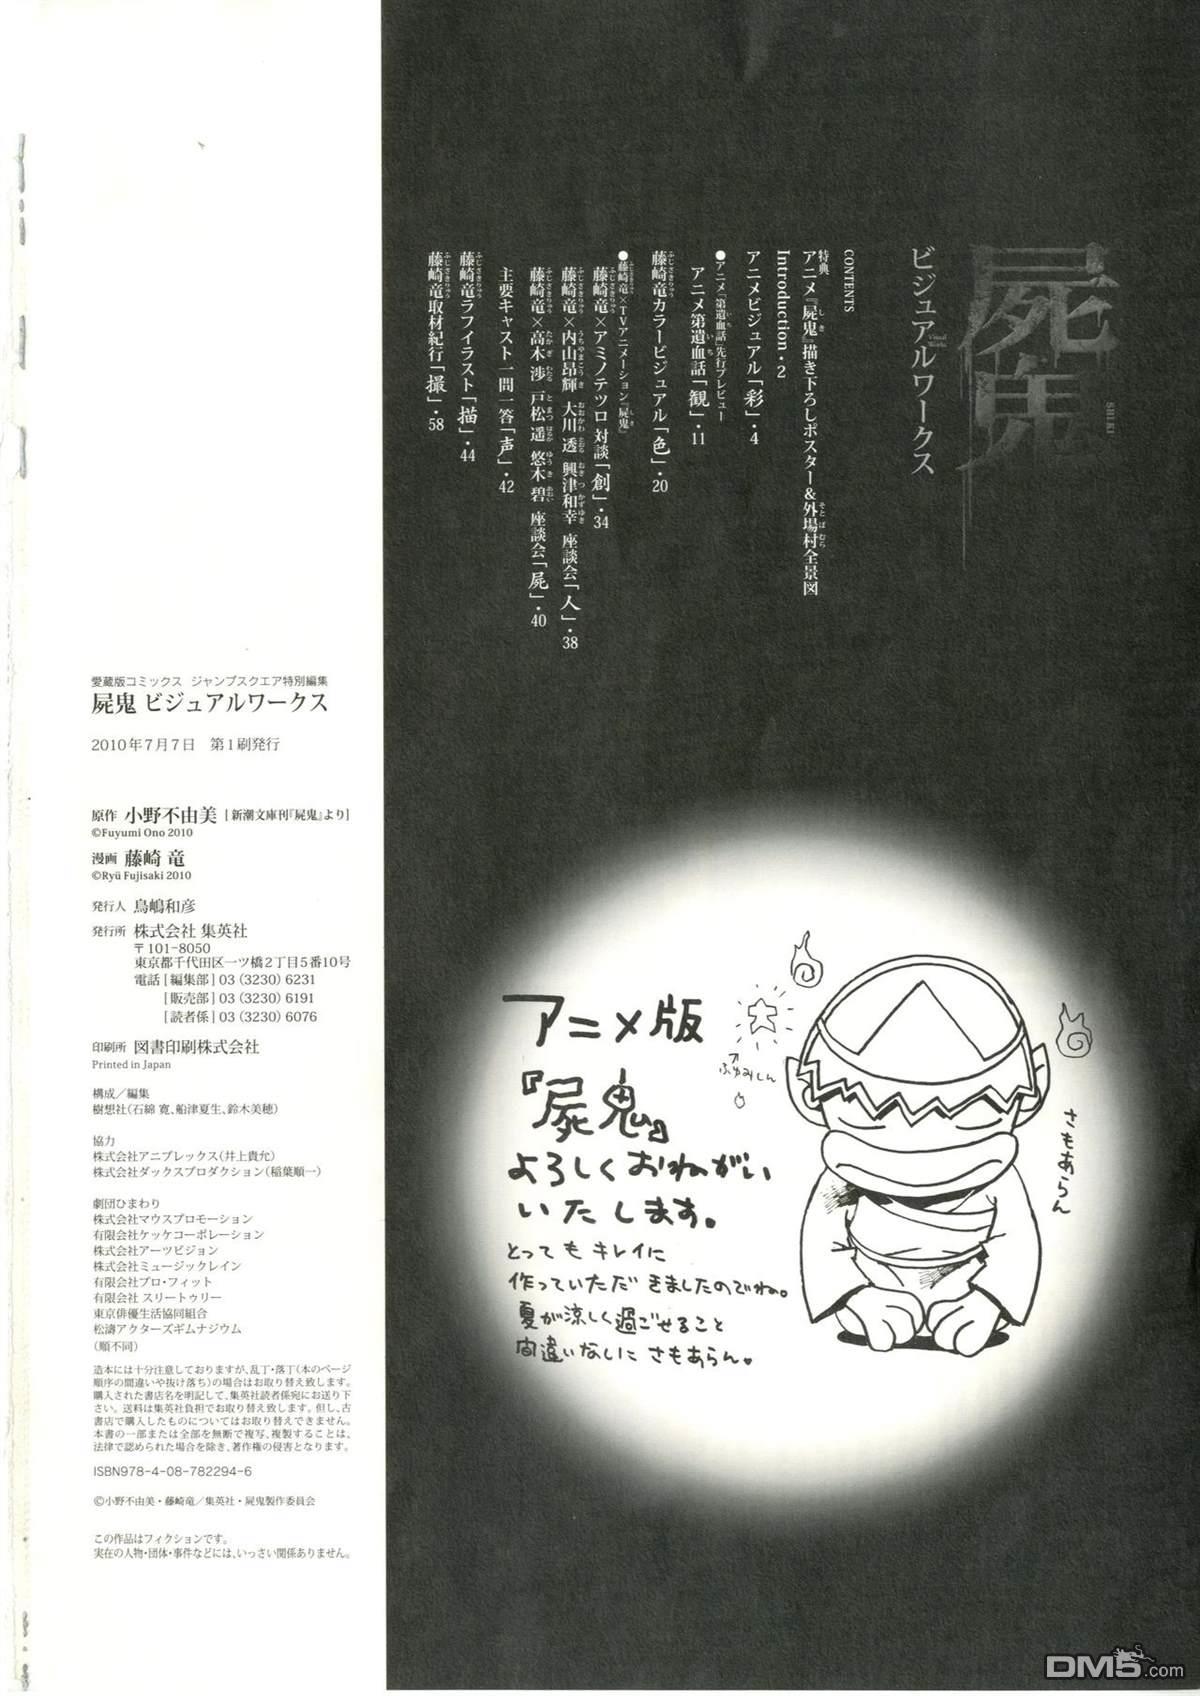 屍鬼
SHIKI
ビジュアルワークス
Visual Works
CONTENTS
特典
アニメ『屍鬼』描き下ろしポスター&外場村全景図
Introduction・2
アニメビジュアル「彩」・4
●アニメ「第遺血話」先行プレビュー
アニメ第遺血話「観」・11
藤崎竜カラービジュアル「色」・20
●藤崎竜×TVアニメーション『屍鬼』
藤崎竜×アミノテツロ 対談「創」・34
藤崎竜×内山昂輝 大川透 興津和幸 座談会「人」・38
藤崎竜×高木渉 戸松遥 悠木碧 座談会「屍」・40
主要キャスト一問一答「声」・42
藤崎竜ラフイラスト「描」・44
藤崎竜取材紀行「撮」・58
アニメ版
『屍鬼』
よろしくおねがい
いたします。
とってもキレイに
作っていただきましたのでね。
夏が涼しく過ごせること
間違いないにさもあらん。
大
ふゆみしん
さもあらん
愛蔵版コミックス ジャンプスクエア特別編集
屍鬼 ビジュアルワークス
2010年7月7日 第1刷発行
原作 小野不由美[新潮文庫刊『屍鬼』より]
©Fuyumi Ono 2010
漫画 藤崎 竜
©Ryū Fujisaki 2010
発行人 鳥嶋和彦
発行所 株式会社 集英社
〒101-8050
東京都千代田区一ツ橋2丁目5番10号
電話[編集部]03(3230)6231
[販売部]03(3230)6191
[読者係]03(3230)6076
印刷所 図書印刷株式会社
Printed in Japan
構成/編集
樹想社(石綿 寛、船津夏生、鈴木美穂)
協力
株式会社アニプレックス(井上貴允)
株式会社ダックスプロダクション(稲葉順一)
劇団ひまわり
株式会社マウスプロモーション
有限会社ケッケコーポレーション
株式会社アーツビジョン
株式会社ミュージックレイン
有限会社プロ・フィット
有限会社 スリートゥリー
東京俳優生活協同組合
松濤アクターズギムナジウム
(順不同)
造本には十分注意しておりますが、乱丁・落丁(本のページ
順序の間違いや抜け落ち)の場合はお取り替え致します。
購入された書店名を明記して、集英社読者係宛にお送り下
さい。送料は集英社負担でお取り替え致します。但し、古
書店で購入したものについてはお取り替えできません。
本書の一部または全部を無断で複写、複製することは、
法律で認められた場合を除き、著作権の侵害となります。
ISBN978-4-08-782294-6
©小野不由美・藤崎竜/集英社・屍鬼製作委員会
この作品はフィクションです。
実在の人物・団体・事件などには、いっさい関係ありません。
DM5.com